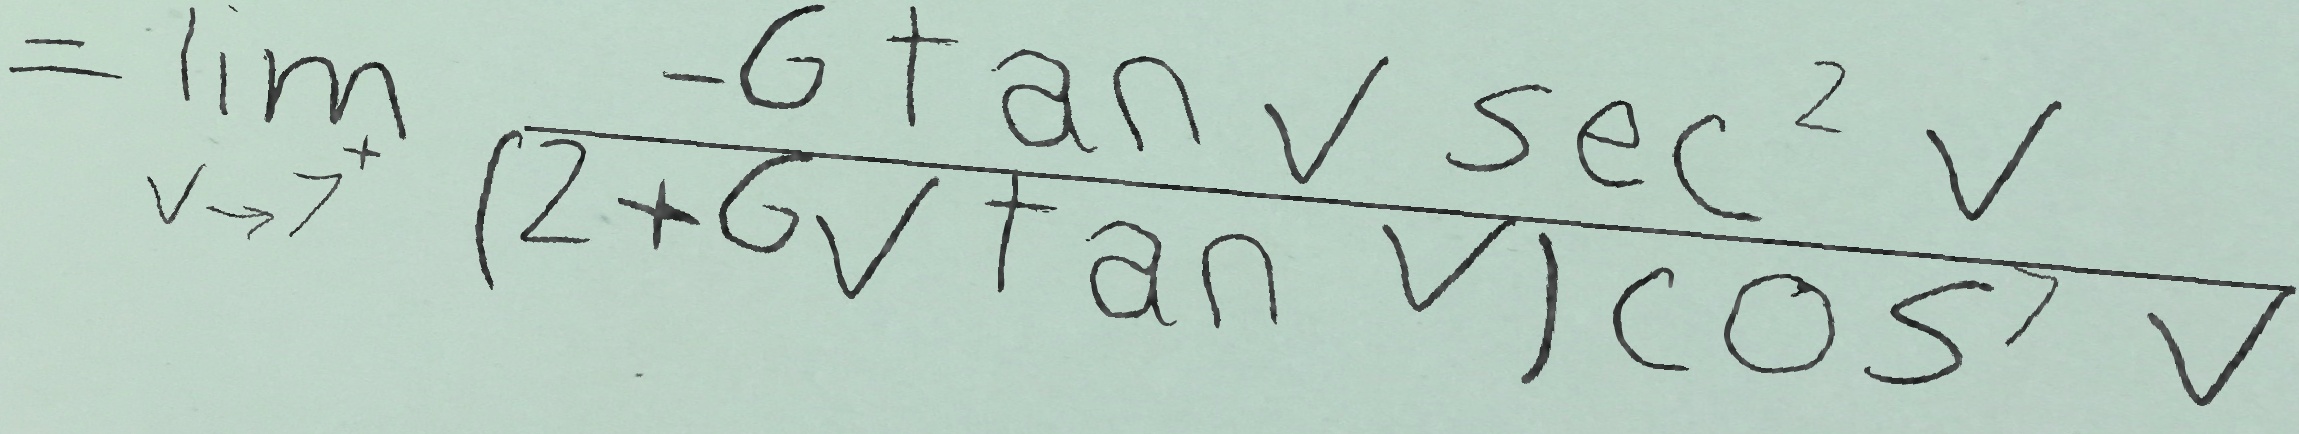 = \lim_{v \to 7^+} \frac{-6 \tan v \sec^2 v}{(2 + 6v \tan v) \cos^7 v}